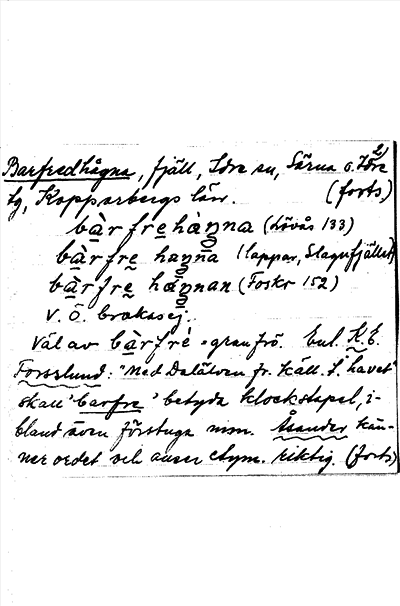 2)
Barfredhågna, fjäll, Idre sn, Särna o. Idre
tg, Kopparbergs län. (forts)
bàrfrehàŋna (Lövås 133)
bàrfre haŋna (lappar, Slagufjället)
bàrfre håŋnan (Foskr 152)
v. ö.
Väl av bàrfré = granfrö. Enl. K.E.
Forsslund: "Med Dalälven fr. käll. t. havet"
skall "barfre" betyda klockstapel, i-
bland även förstuga m.m. Åsander kän-
ner ordet och anser etym. riktig. (forts)